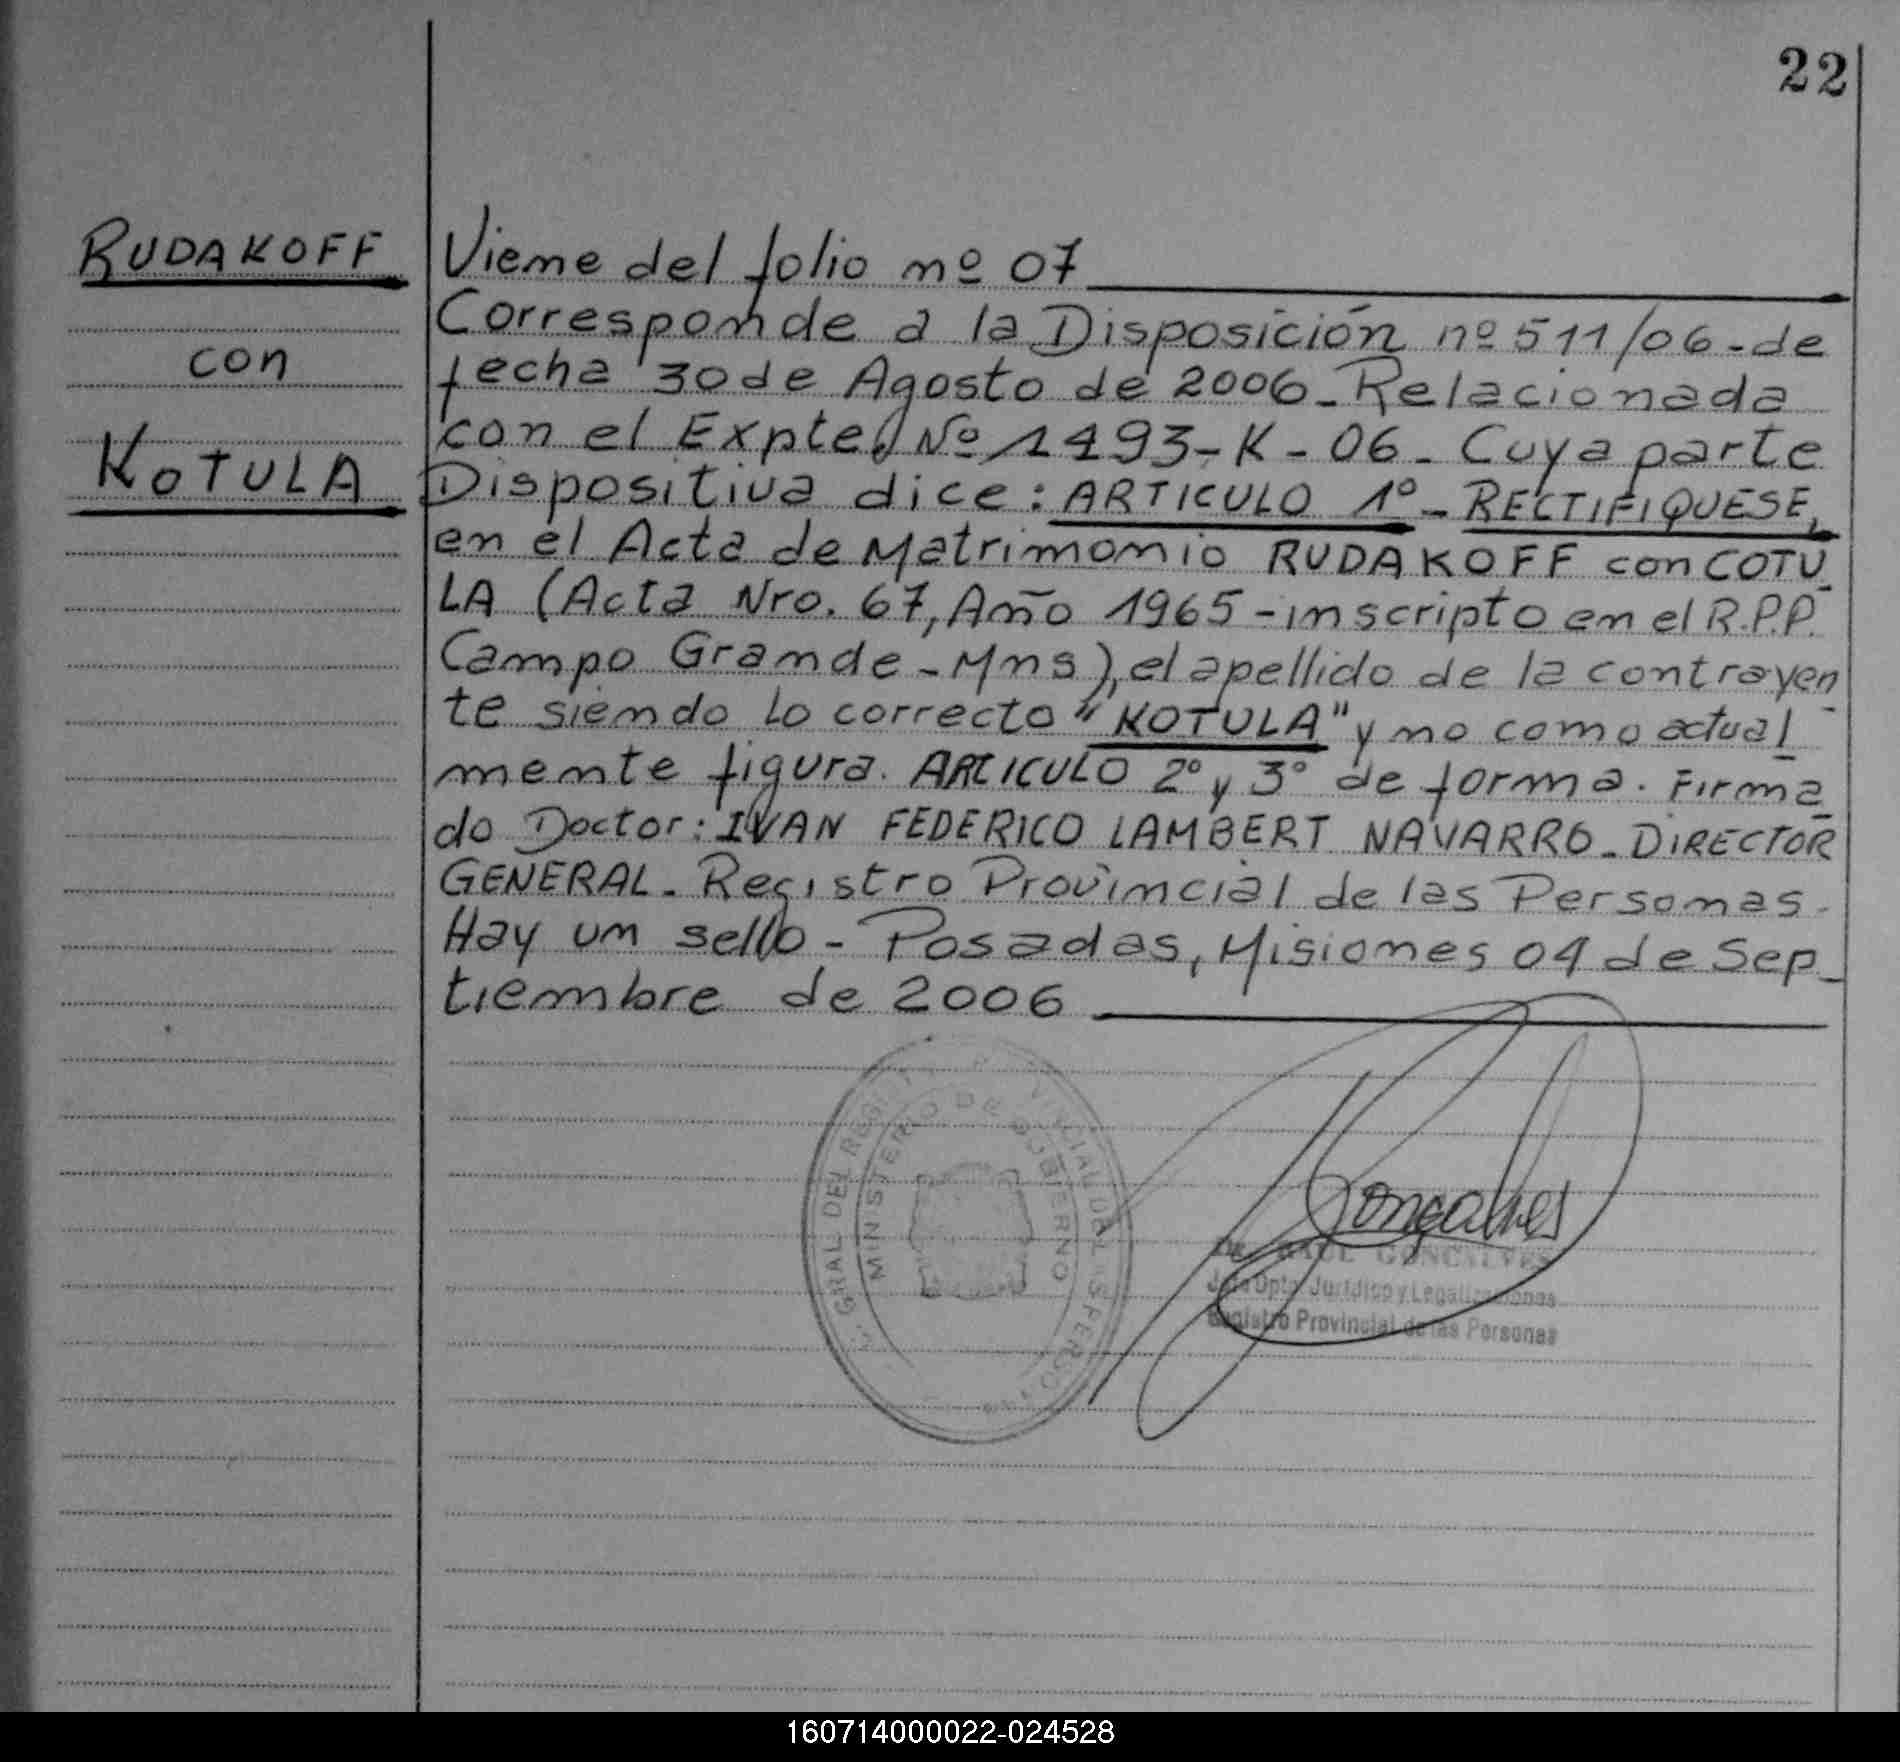 22
RUDAKOFF
con
KOTULA
Viene del folio nº 07
Corresponde a la Disposición nº 511/06-de
fecha 30 de Agosto de 2006- Relacionada
con el Expte. Nº 1493-K-06- Cuya parte
Dispositiva dice: ARTICULO 1º- RECTIFIQUESE,
en el Acta de Matrimonio RUDAKOFF con COTU-
LA (Acta Nro. 67, Año 1965-inscripto en el R.P.P.
Campo Grande-Mns), el apellido de la contrayen-
te siendo lo correcto "KOTULA" y no como actual-
mente figura. ARTICULO 2º y 3º de forma. Firma-
do Doctor: IVAN FEDERICO LAMBERT NAVARRO- DIRECTOR
GENERAL- Registro Provincial de las Personas-
Hay un sello- Posadas, Misiones 04 de Sep-
tiembre de 2006
GRAL DEL PERSONAS
MINISTERIO DE GOBIERNO
Gonçalves
DR. RAUL GONCALVES
Jefe Dpto. Jurídico y Legalizaciones
Registro Provincial de las Personas
160714000022-024528